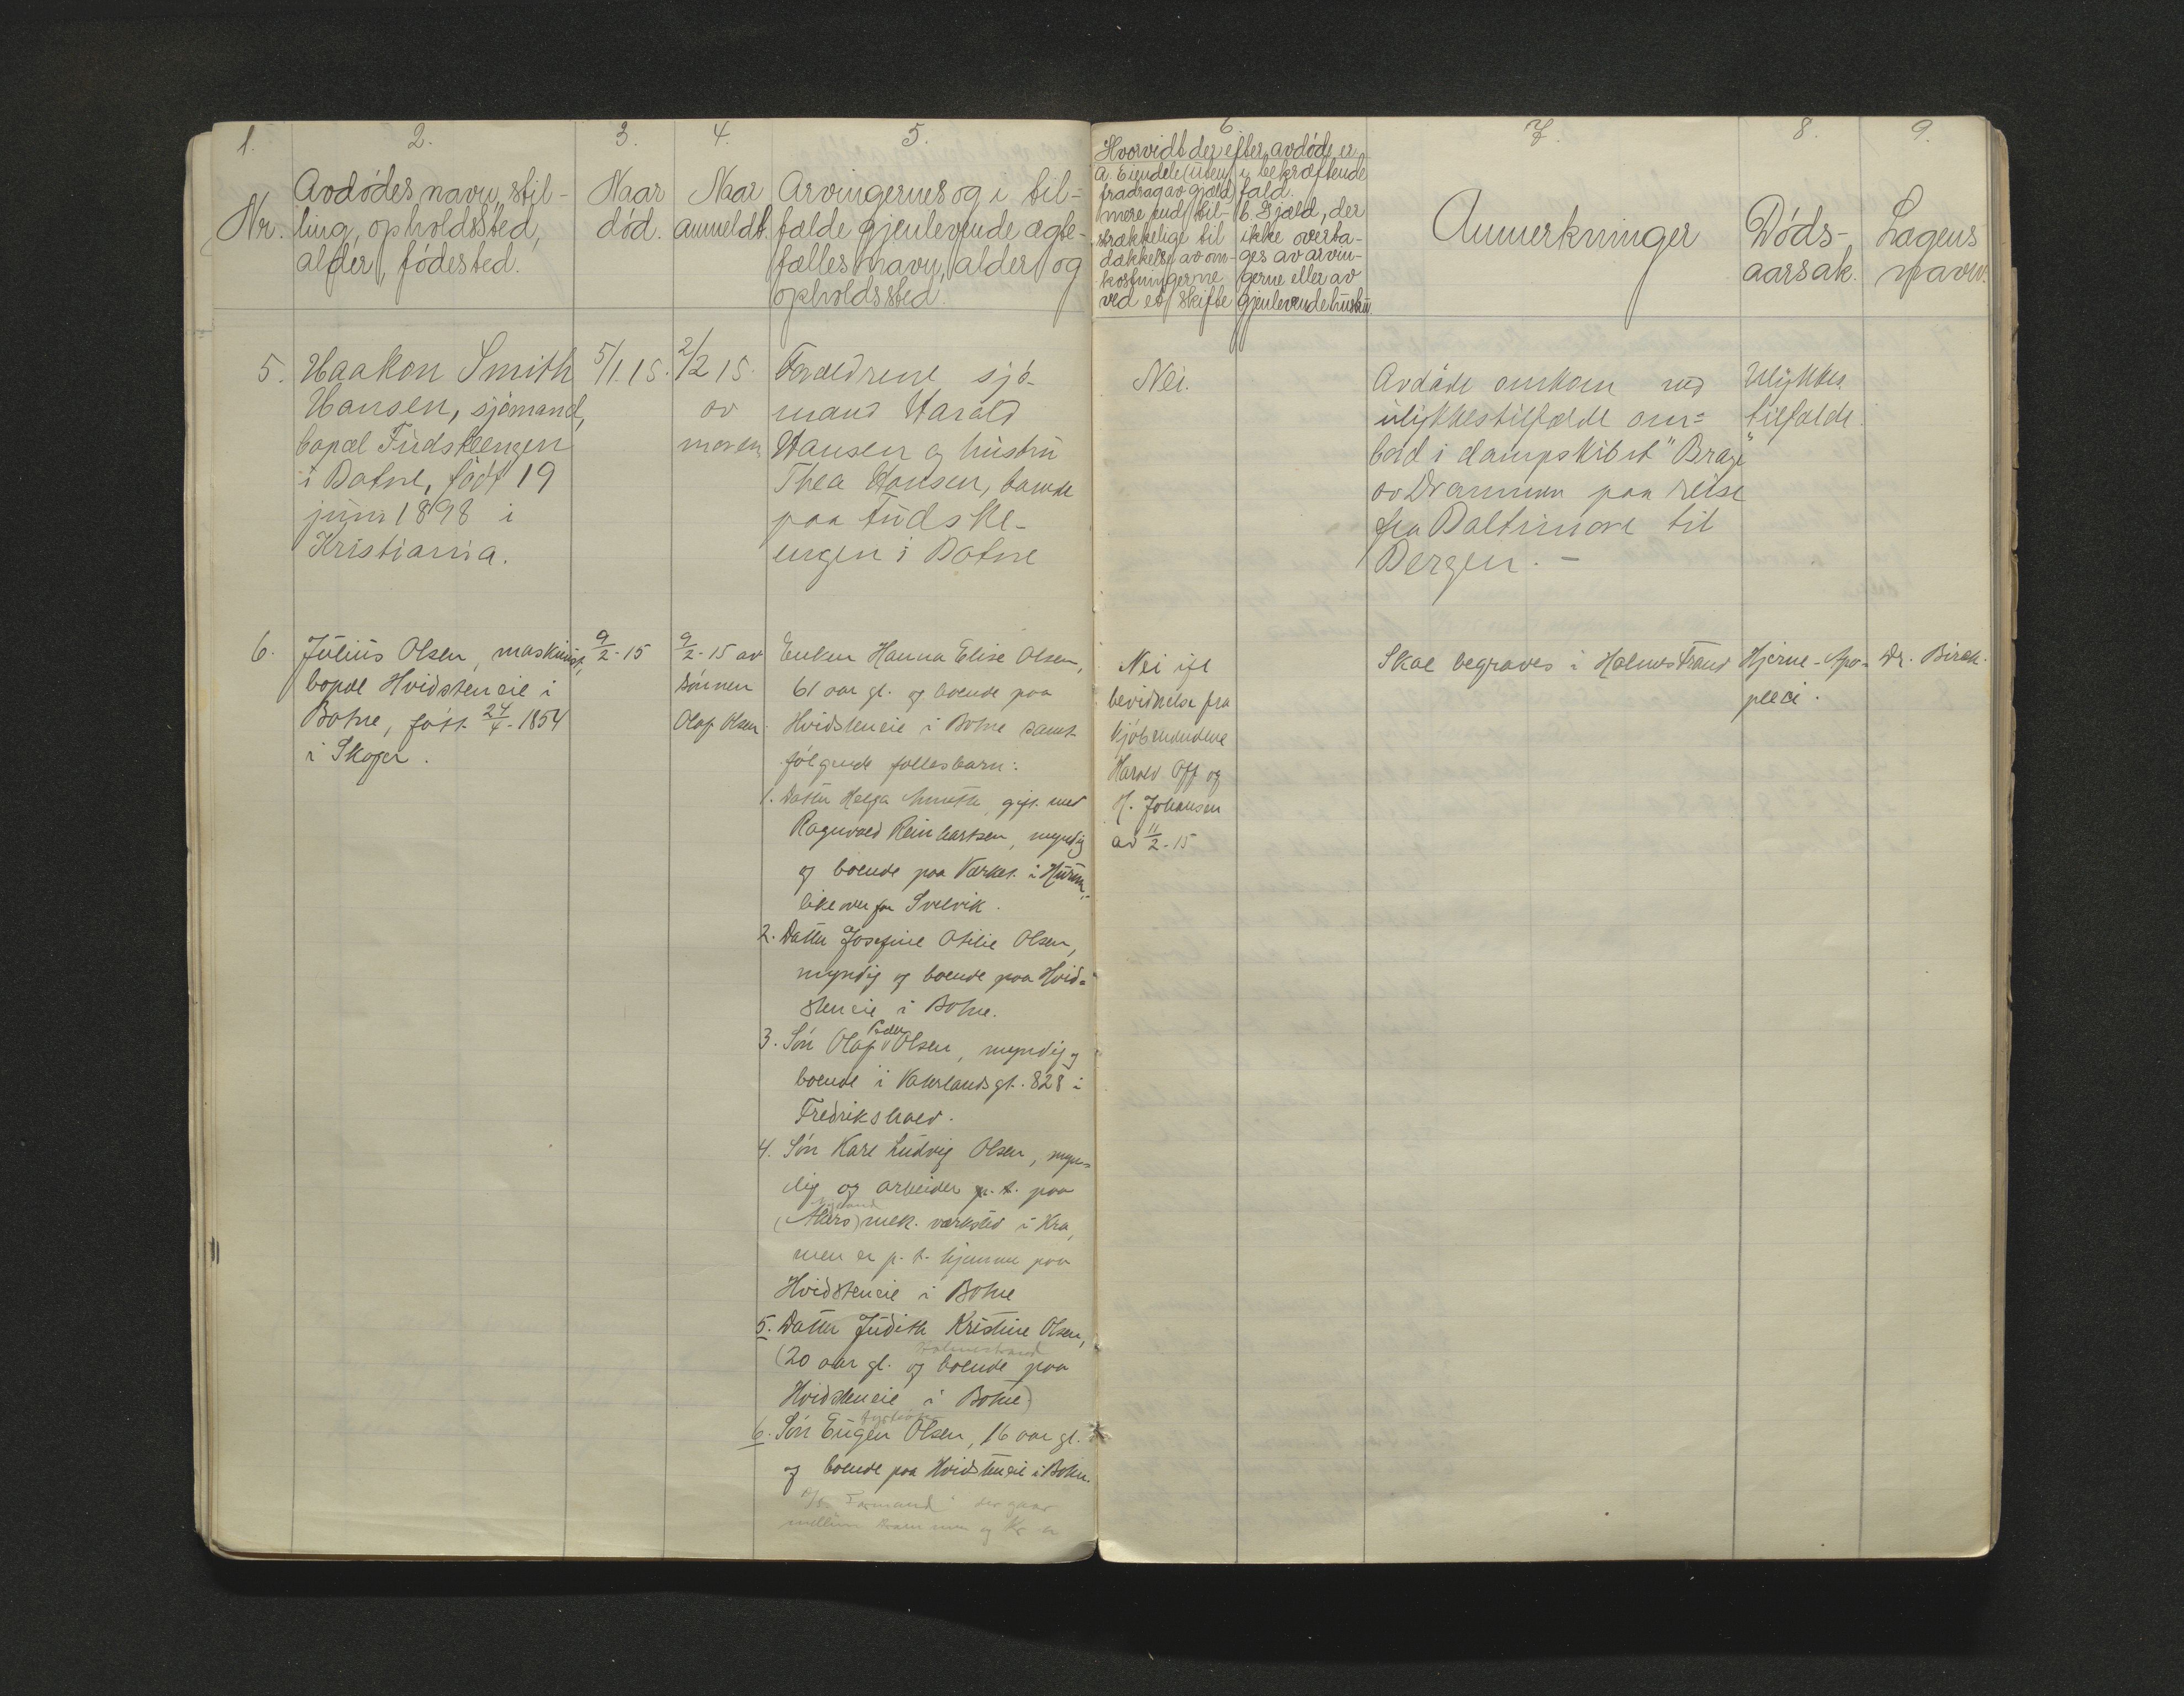 1.
2.
3.
4.
5.
6
7.
8.
9.
Nr.
Avdødes navn, stil-
ling, opholdssted,
alder, fødested.
Naar
død.
Naar
anmeldt.
Arvingernes og i til-
fælde gjenlevende ægte-
fælles navn, alder og
opholdssted.
Hvorvidt der efter avdøde er
a. Eiendele (uten
fradrag av gjæld)
mere end til-
strækkelige til
dækkelse av om-
kostningerne
ved et skifte
i bekræftende
fald.
b. Gjæld, der
ikke overta-
ges av arvin-
gerne eller av
gjenlevende hustru.
Anmerkninger
Døds-
aarsak.
Lægens
navn.
5.
Haakon Smith
Hansen, sjømand,
bopæl
i Botne, født 19
juni 1898 i
Kristiania.
5/1.15.
2/2 15.
av
moren
Forældrene sjø-
mand Harald
Hansen og hustru
Thea Hansen, boende
paa
engen i Botne
Nei.
Avdøde omkom ved
ulykkestilfælde om-
bord i dampskibet "Brage"
av Drammen paa reise
fra Baltimore til
Bergen. -
Ulykkes
tilfælde.
6.
Julius Olsen, maskinist,
bopæl Hvidsteneie i
Botne, født 24/4 - 1854
i Skoger.
9/2 - 15
9/2 - 15 av
sønnen
Olaf Olsen.
Enken Hanna Elise Olsen,
61 aar gl. og boende paa
Hvidsteneie i Botne samt
følgende fællesbarn:
1. Datter Helga Annette, gift med
Ragnvald Reinhartsen, myndig
og boende paa Verket i Hurum,
like over for Svelvik.
2. Datter Josefine Otilie Olsen,
myndig og boende paa Hvid-
steneie i Botne.
Peder
3. Søn Olaf Olsen, myndig og
boende i Vaterlandsgt. 828 i
Fredrikshald.
4. Søn Karl Ludvig Olsen, myn-
dig og arbeider p. t. paa
(Akers) mek. verksted i Kra,
men er p. t. hjemme paa
Hvidsteneie i Botne
5. Datter Judith Kristine Olsen,
Holmestrand
(20 aar gl. og boende paa
Hvidsteneie i Botne)
6. Søn Eugen Olsen, 16 aar gl.
og boende paa Hvidsteneie i Botne.
der gaar
mellem Drammen og
Nei ifl
bevidnelse fra
kjøbmændene
Harald Off og
H. Johansen
av 11/2 - 15
Skal begraves i Holmestrand
Hjerne-Apo-
plexi.
Dr. Birch.